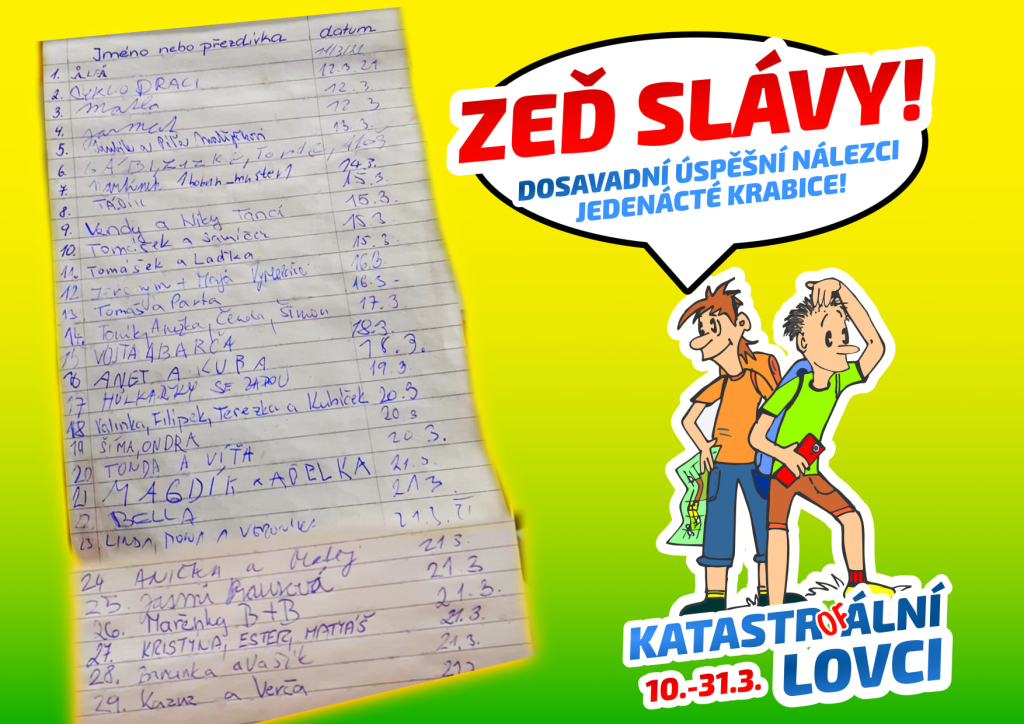 Jméno nebo přezdívka datum
1. ÁLFÁ 11/3/21
2. CYKLODRACI 12.3.21
3. 12.3.
4. 12.3
5. 13.3.
6.
7. 14.3.
8. TÁDIII 15.3.
9. Vendy a Niky Tancí 15.3.
10. Tomášek a 15.3
11. Tomášek a Laďka 15.3.
12 + Mája 16.3
13 Tomáš a Parta 16.3-
14. Toník, Anežka, Čenda, Šimon 17.3
15 VOJTA A BARČA 18.3.
16 ANET A KUBA 18.3.
17 HŮLKAŘKY SE ZADOU 19.3
18 Valinka, Filípek, Terezka a Kubíček 20.3
19 ŠÍMA, ONDRA 20 3
20 TONDA A VÍŤA 20 3.
21 MAGDÍK A ADÉLKA 21.3.
22. BELLA 21 3
23 LINDA, A 21.3.
24 ANIČKA a Matěj 21 3.
25. Jasmí 21 3
26. Mařenky B+B 21.3.
27. KRISTÝNA, ESTER, MATYÁŠ 21.3.
28. a Vašík 21.3.
29. Kazuz a Verča
ZEĎ SLÁVY!
DOSAVADNÍ ÚSPĚŠNÍ NÁLEZCI
JEDENÁCTÉ KRABICE!
KATASTROFÁLNÍ
10.-31.3. LOVCI